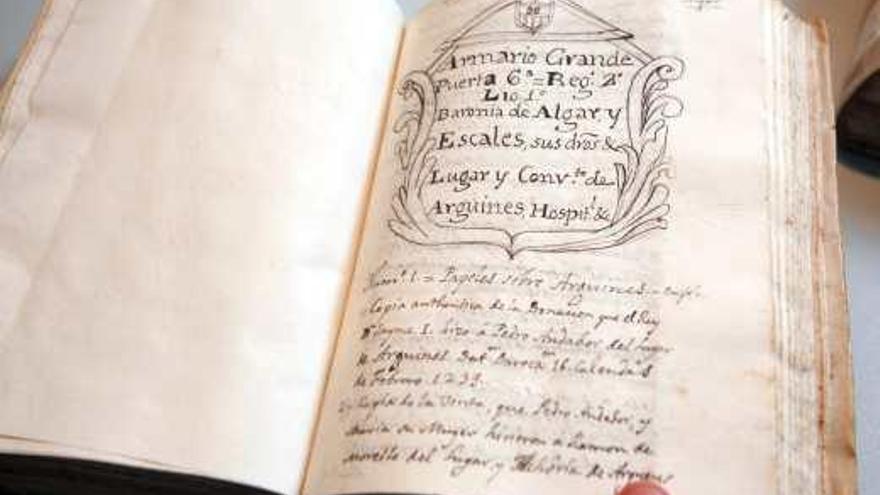 Armario Grande
Puerta 6ª = Reg. 2º
Lio 1º
Baronia de Algar, y
Escales, sus dros &
Lugar y Convto de
Arguines, Hospil &
Numº 1 = Papeles sobre Arguines =
Copia authentica de la Donacion que el Rey
Dn Jayme I. hizo à Pedro Andador del lugar
de Arguines Datª 16. Calendas
de Febrero 1233.
de la Venta, que Pedro Andador, y
Maria su Mujer hicieron a Ramon de
Morello del lugar y Alcheria de Arguines